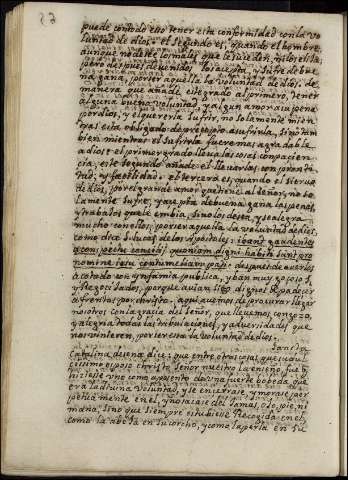 puede con todo eso tener esta conformidad con la vo
luntad de dios. el segundo es, quando el hombre
aunque no desee los males que le suceden, ni los elija,
pero despues de venidos los acepta, y sufre de bue
na gana, por ser aquella la voluntad de dios. de
manera que añade este grado al primero, tener
alguna buena voluntad y algun amor a su pena
por dios, y el quererla sufrir, no solamente mien
tras esta obligado de precepto a sufrirla, sino tam
bien mientras el sufrirla fuere mas agradable
a dios. el primer grado lleva las cosas con pacien
cia, este segundo añade el llevarlas con pronti
tud, y facilidad. el tercero es, quando el siervo
de dios, por el grande amor que tiene al señor, no so
lamente sufre, y acepta de buena gana las penas
y trabajos que le embia, sino los desea, y se alegra
mucho con ellos, por ser aquella la voluntad de dios,
como dice S. lucas de los Apostoles: ibant gaudentes
a conspectu concilij quoniam digni habiti sunt pro
nomine iesu contumeliam pati. despues de averlos
açotado con infamia publica, yban muy gozosos,
y regocijados, porque avian sido dignos de padecer
afrentas por christo. aqui avemos de procurar llegar
nosotros con la gracia del señor, que llevemos con gozo,
y alegria todas las tribulaciones, y adversidades que
nos vinieren, por ser esta la voluntad de dios.
Santa
Catalina de sena dice: que entre otras cosas que su dul
cissimo esposo christo Señor nuestro la enseño, fue q̃
hiziesse uno como aposento de una fuerte boveda, que
era la divina voluntad, y se encerrase, y morase per
petuamente en el, y no sacase del jamas, ojo, pie, ni
mano, sino que siempre estubiesse Recogida en el
como la abeja en su corcho, y como la perla en su